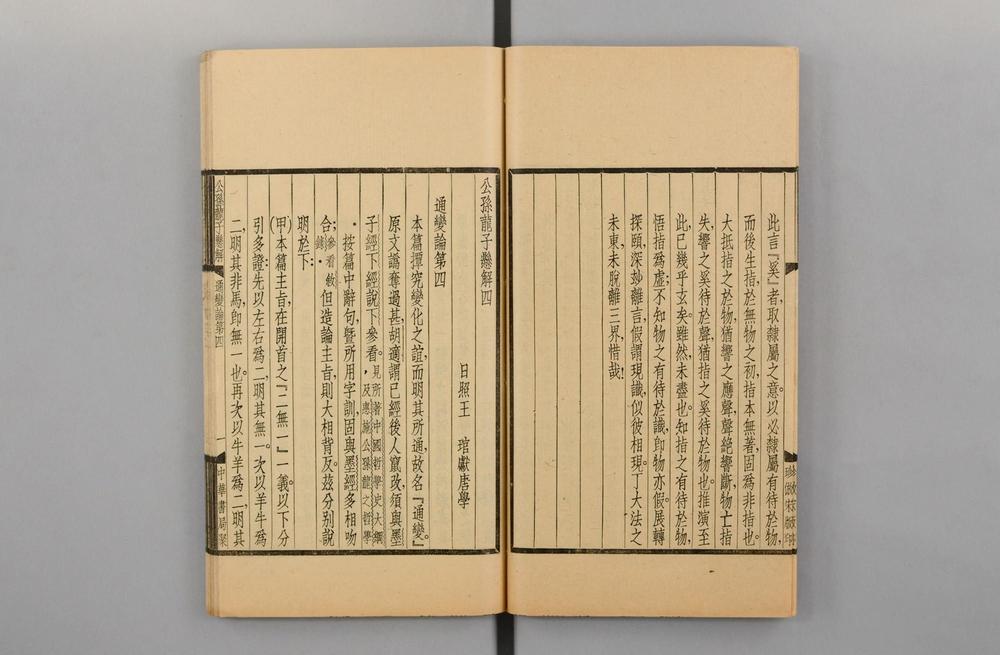 此言『奚』者，取隸屬之意。以必隸屬有待於物，
而後生指，於無物之初，指本無著，固爲非指也。
大抵指之於物，猶響之應聲，聲絕響斷，物亡指
失，響之奚待於聲，猶指之奚待於物也。推演至
此，已幾乎玄矣。雖然，未盡也。知指之有待於物，
悟指爲虛；不知物之有待於識，即物亦假。展轉
探頤，深妙離言，假謂現識，似彼相現，丁大法之
未東，未脫離三界，惜哉！
珍倣宋版印
公孫龍子懸解四
日照王　琯獻唐學
通變論第四
本篇撢究變化之誼，而明其所通，故名『通變。』
原文譌奪過甚，胡適謂已經後人竄改，須與墨
子經下經說下參看。見所著中國哲學史大綱，及惠施公孫龍之哲學
。按篇中辭句，曁所用字訓，固與墨經多相吻
合；參看敘錄。但造論主旨，則大相背反。茲分別說
明於下：
(甲)本篇主旨，在開首之『二無一』一義。以下分
引多證：先以左右爲二，明其無一。次以羊牛爲
二，明其非馬，即無一也。再次以牛羊爲二，明其
公孫龍子懸解
通變論第四
一
中華書局聚